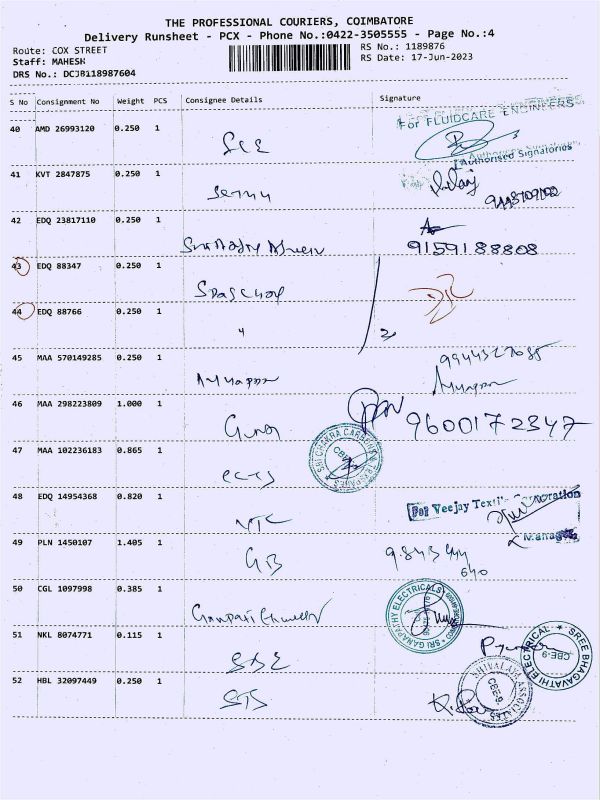 THE PROFESSIONAL COURIERS, COIMBATORE
Delivery Runsheet - PCX - Phone No.:0422-3505555 - Page No.:4
Route: COX STREET
RS No.: 1189876
Staff: MAHESH
RS Date: 17-Jun-2023
DRS No.: DCJB118987604
S No Consignment No Weight PCS Consignee Details Signature
For FLUIDCARE ENGINEERS
Authorised Signatories
40 AMD 26993120 0.250 1
41 KVT 2847875 0.250 1
42 EDQ 23817110 0.250 1
9159188808
43 EDQ 88347 0.250 1
44 EDQ 88766 0.250 1 "
45 MAA 570149285 0.250 1 Ayyappa
Ayyappa
46 MAA 298223809 1.000 1
9600172347
47 MAA 102236183 0.865 1
SRI CHAKRA CARBONIN THERAPIES
CBE
48 EDQ 14954368 0.820 1 VTC
For Veejay Textile Corporation
Manager
49 PLN 1450107 1.405 1 GB 9843444
640
50 CGL 1097998 0.385 1 Ganpati Engineers
SRI GANAPATHY ELECTRICALS
51 NKL 8074771 0.115 1 SBE
SREE BHAGAVATHI ELECTRICAL
CBE-9
52 HBL 32097449 0.250 1 STS
SHIVALAYA ASSOCIATES
CBE-9.